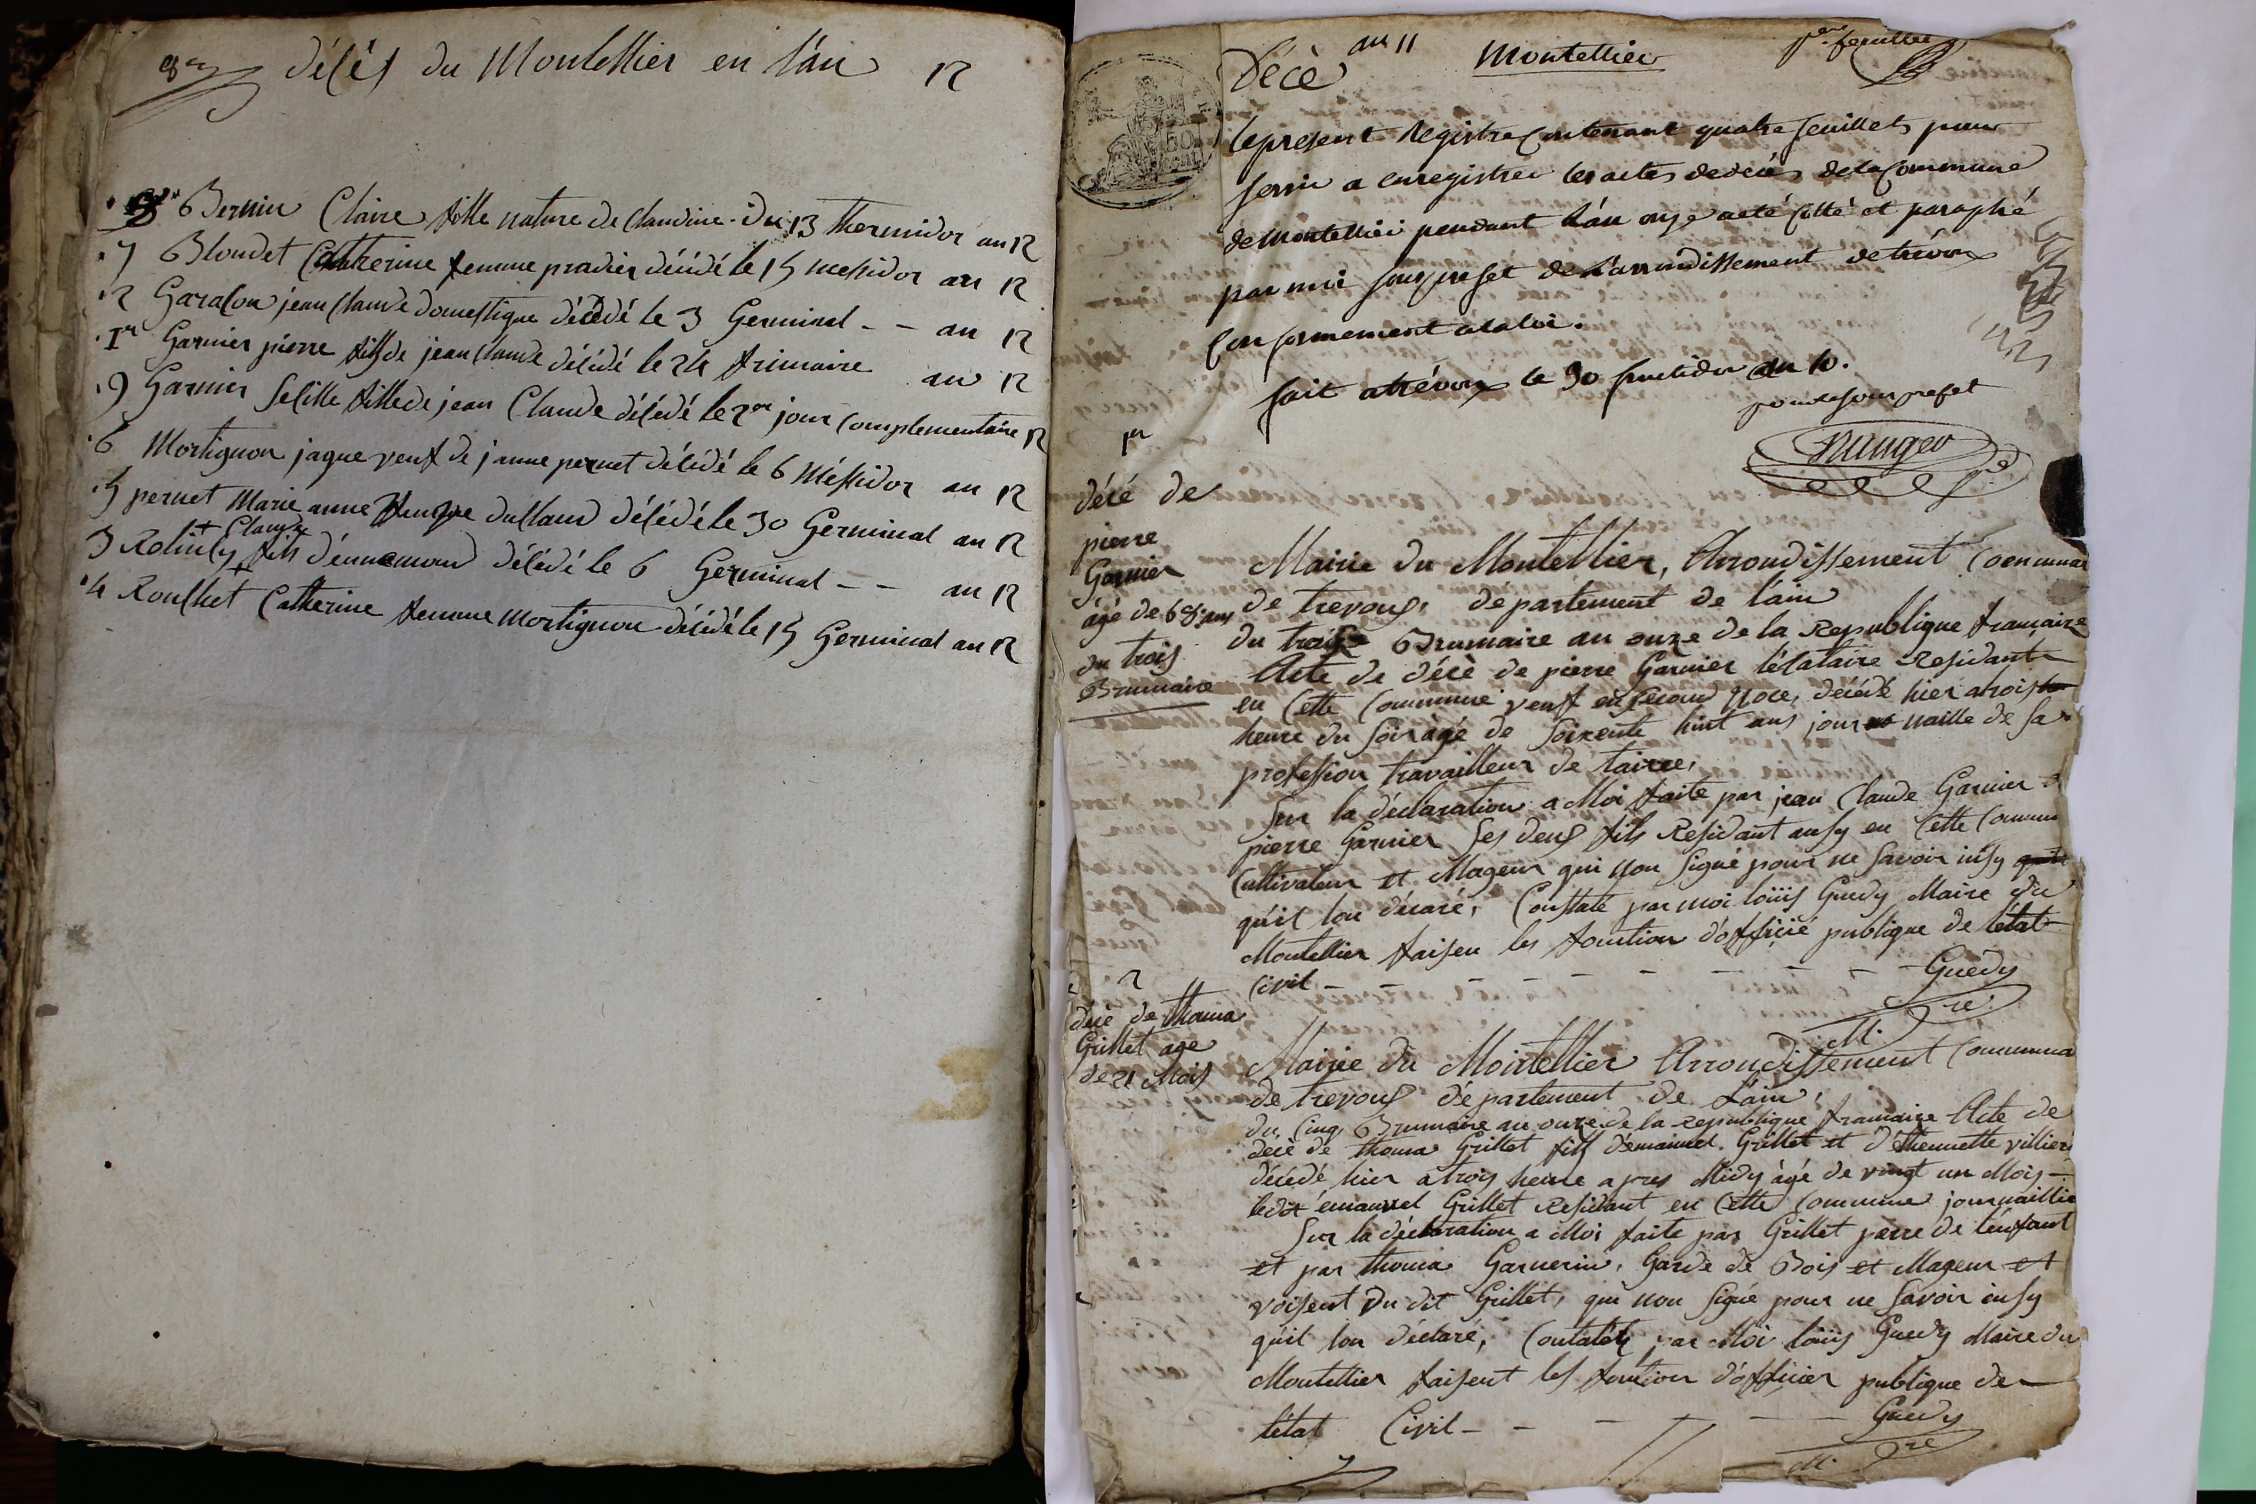 décès du Montellier en l'an 12
8 Bernin Claire fille nature de Claudine du 13 thermidor an 12
7 Blondet Catherine femme pradier décédé le 15 messidor an 12
2 Garason jean Claude domestique décédé le 3 Germinal - - an 12
1er Garnier pierre fils de jean Claude décédé le 24 frimaire an 12
9 Garnier Sesille fille de jean Claude décédé le 2me jour complementaire 12
6 Mortignon jaque veuf de janne pernet décédé le 6 Méssidor an 12
5 pernet Marie anne décédé le 30 Germinal an 12
Claude
3 fils d'ennemond décédé le 6 Germinal - - an 12
4 Roulhet Catherine femme Mortignon décédé le 15 Germinal an 12
Décè an 11 Montellier 1er feuillet
50
cent
Le present Registre Contenant quatre feuillets pour
servir a enregistrer les actes de décès de la Commune
de Montellier pendant l'an onze a été Cotté et paraphé
par moi sous prefet de l'arrondissement de trévoux
Conformement a la loi.
fait a trévoux le 30 fructidor an 10.
pour le sous prefet
1er
décé de
pierre
Garnier
âgé de 68 ans
du trois
Brumaire
Mairie du Montellier, Arrondissement Communal
de trevoux, departement de l'ain
du Brumaire an onze de la Republique française
Acte de décè de pierre Garnier Résidant
en Cette Commune veuf en second Noce, décédé hier a trois
heure du soir âgé de soixente huit ans journaille de sa
profession travailleur de tairre,
Sur la déclaration a Moi faite par jean Claude Garnier
pierre Garnier ses deux fils Residant ausy en Cette Commun
Cultivateur et Mageur qui non signé pour ne savoir insy
quil lon décaré, Constaté par moi loüis Guedy Maire du
Montellier faisen les fonction d'officié publique de létat
Civil - - - - - - - - Guedy
M. re
2
décè de thoma
Grillet age
de 21 Mois
Mairie du Montellier Arrondissement Communa
de trevoux département de L'ain,
du Cinq Brumaire an onze de la republique framaise Acte de
décè de thoma Grillet fils d'emanuel Grillet et d'Ettiennette villier
décédé hier a trois heure apres Midy âgé de vingt un Mois -
ledit émanuel Grillet Residant en Cette Commune journaillie
Sur la déclaration a Moi faite par Grillet paere de l'enfant
et par thoma Garnerin, Garde de Bois et Mageur et
voisent du dit Grillet, qui non signé pour ne savoir insy
quil lon déclaré, Contaté par Moi loüis Guedy Maire du
Montellier faisent les fontion d'officier publique de
létat Civil - - - - - Guedy
M. re